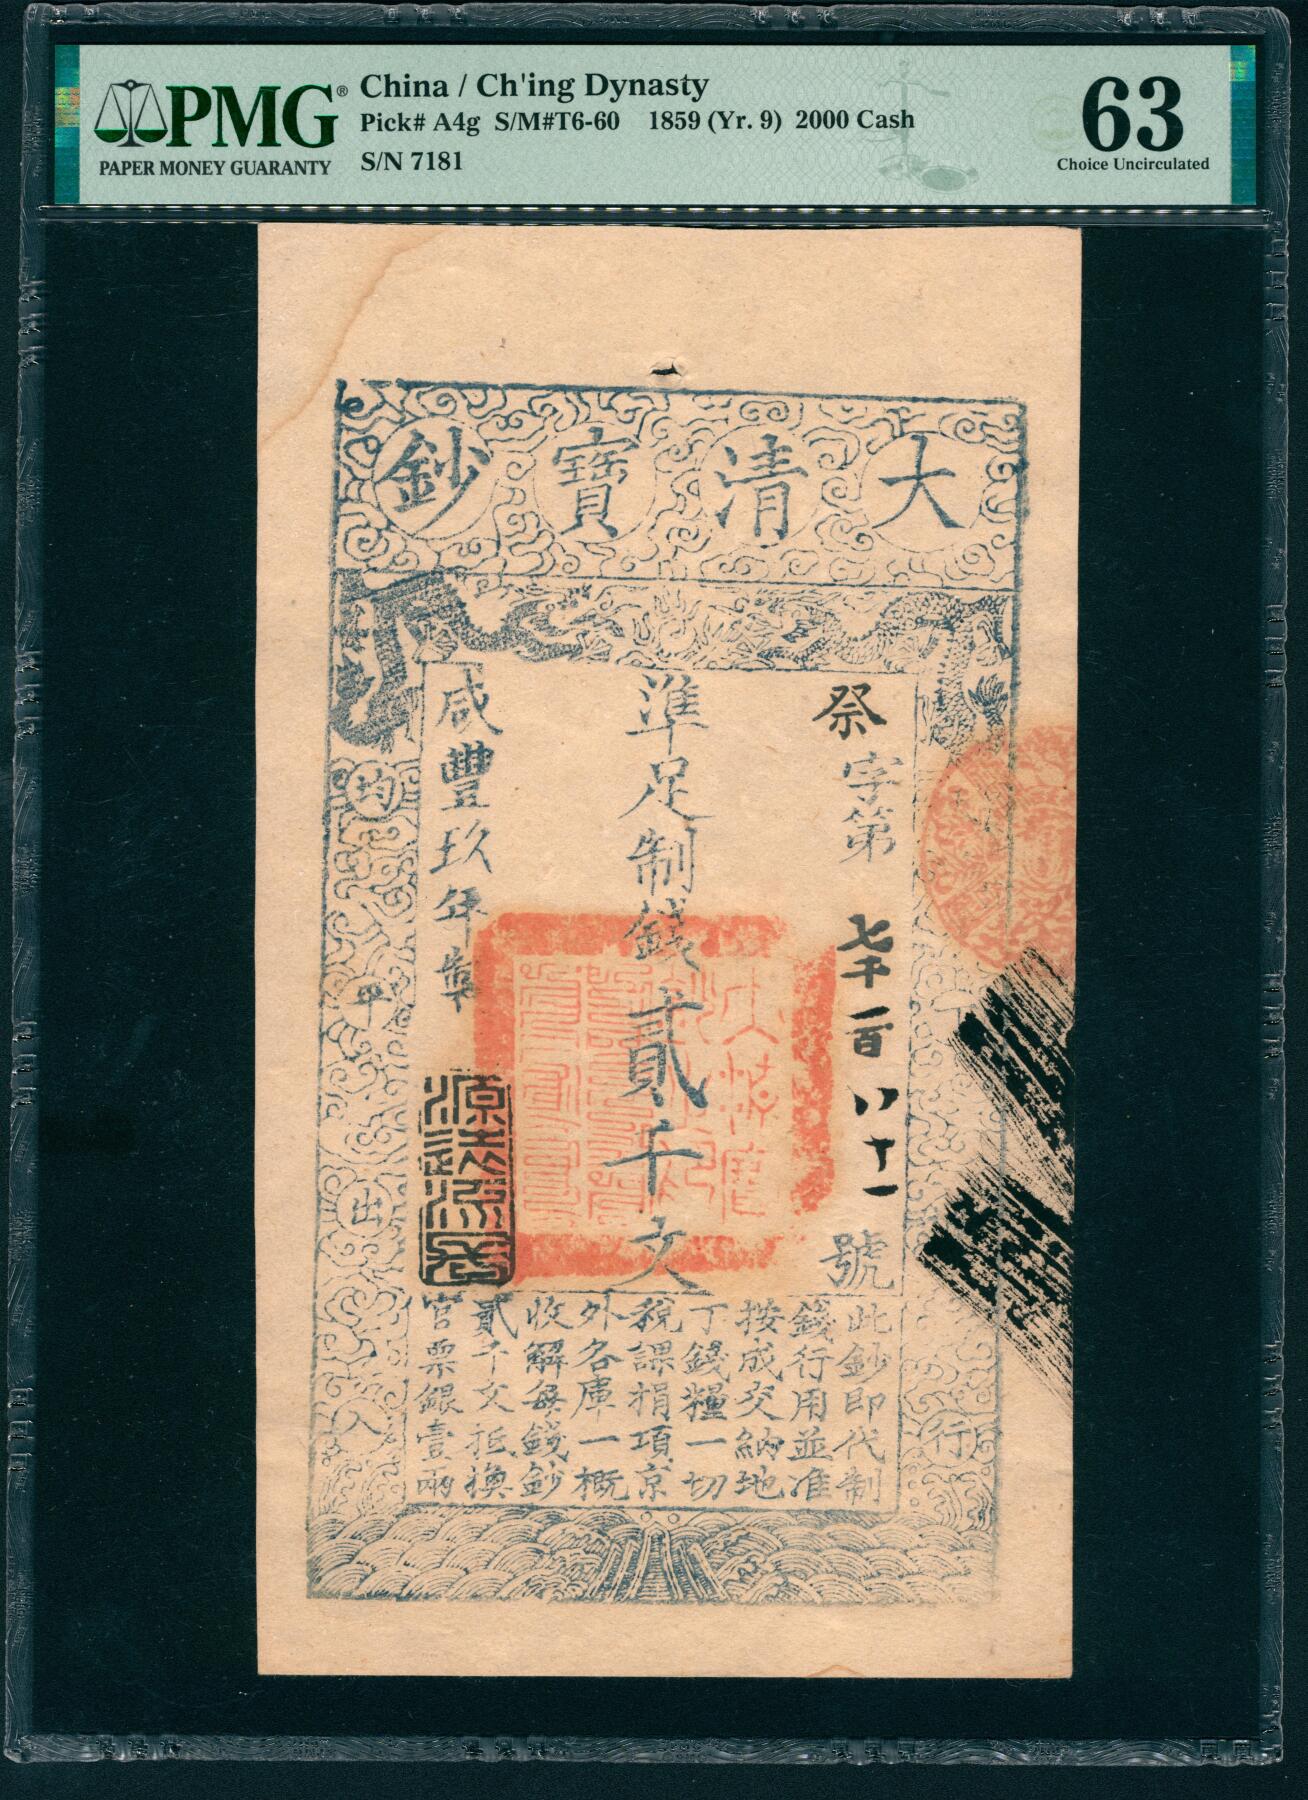 PMG®
PAPER MONEY GUARANTY
China / Ch'ing Dynasty
Pick# A4g S/M#T6-60 1859 (Yr. 9) 2000 Cash
S/N 7181
63
Choice Uncirculated
大清寶鈔
祭字第七千一百八十一號
準足制錢貳千文
咸豐玖年製
均
平
出
入
行
此鈔即代制
錢行用並准
按成交納地
丁錢糧一切
稅課捐項京
外各庫一概
收解每錢鈔
貳千文抵換
官票銀壹兩